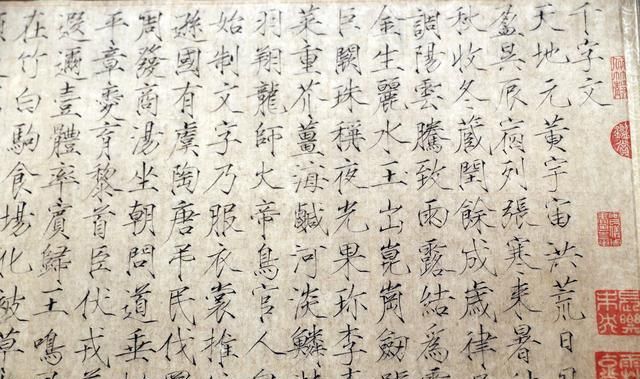 千字文
天地元黃宇宙洪荒日
盈昃辰宿列張寒来暑
秋收冬藏閏餘成歲律
調陽雲騰致雨露結為
金生麗水玉出崑崗劍
巨闕珠稱夜光果珍李
菜重芥薑海鹹河淡鱗
羽翔龍師火帝鳥官人
始制文字乃服衣裳推
遜國有虞陶唐弔民伐
周發商湯坐朝問道垂
平章愛育黎首臣伏戎
遐邇壹體率賓歸王鳴
在竹白駒食場化被草